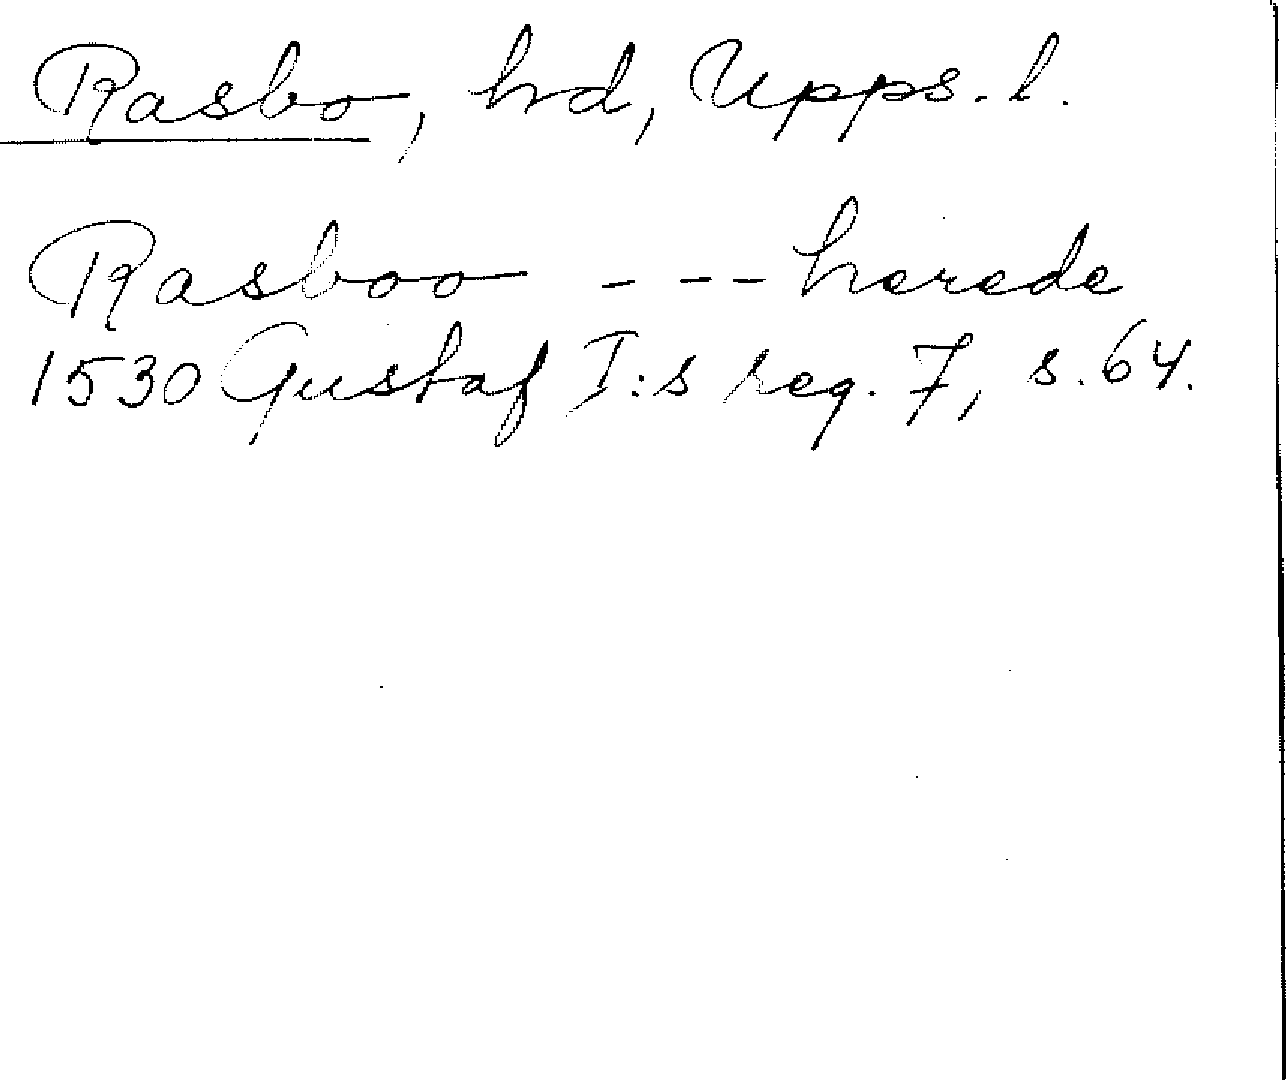 Rasbo, hd, Upps. l.
Rasboo - -- herede
1530 Gustaf I:s reg. 7, s. 64.